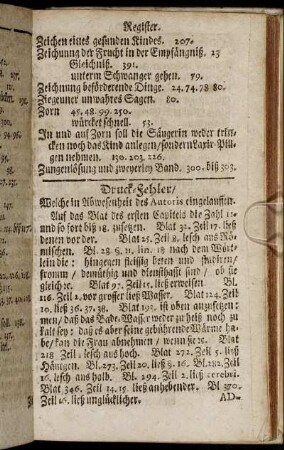 Register.
Zeichen eines gesunden Kindes. 207.
Zeichnung der Frucht in der Empfängniß. 23
Gleichniß. 391.
unterm Schwanger gehen. 79.
Zeichnung befördernde Dinge. 24. 74. 78 80.
Ziegeuner unwahres Sagen. 80.
Zorn 45. 48. 99. 250.
würcket schnell. 53.
In und auf Zorn soll die Säugerin weder trin-
cken noch das Kind anlegen / sondern Laxir-Pil-
len nehmen. 130. 203. 226.
Zungenlösung und zweyerley Band. 300. biß 303.
Druck-Fehler /
Welche in Abwesenheit des Autoris eingelauffen.
Auf das Blat des ersten Capitels die Zahl 11.
und so fort biß 18. zusetzen. Blat 32. Zeil 17. ließ
denen vor der. Blat 25. Zeil 8. lesch aus Rö-
mischen. Bl. 28. §. 11. lin. 18 nach dem Wört-
lein die: hingegen fleissig beten und studiren /
fromm / demüthig und dienstbahr sind / ob sie
gleich ꝛc. Blat 97. Zeil 15. ließ erweisen Bl.
116. Zeil 2. vor grosser ließ Wasser. Blat 124. Zeil
10. ließ 36. 37. 38. Blat 192. ist oben anzusetzen:
men / daß das Bade-Wasser weder zu heiß noch zu
kalt sey: daß es aber seine gebührende Wärme ha-
be / kan die Frau abnehmen / wenn sie ꝛc. Blat
218 Zeil 1. lesch auß hoch. Blat 272. Zeil 5. ließ
Häutgen. Bl. 273. Zeil 20. ließ §. 16. Bl. 282. Zeil
16. lesch aus halb. Bl. 294. Zeil 2. ließ cerebri.
Blat 346. Zeil 14. 15. ließ anhebender. Bl. 370.
Zeil 16. ließ unglücklicher. AD-